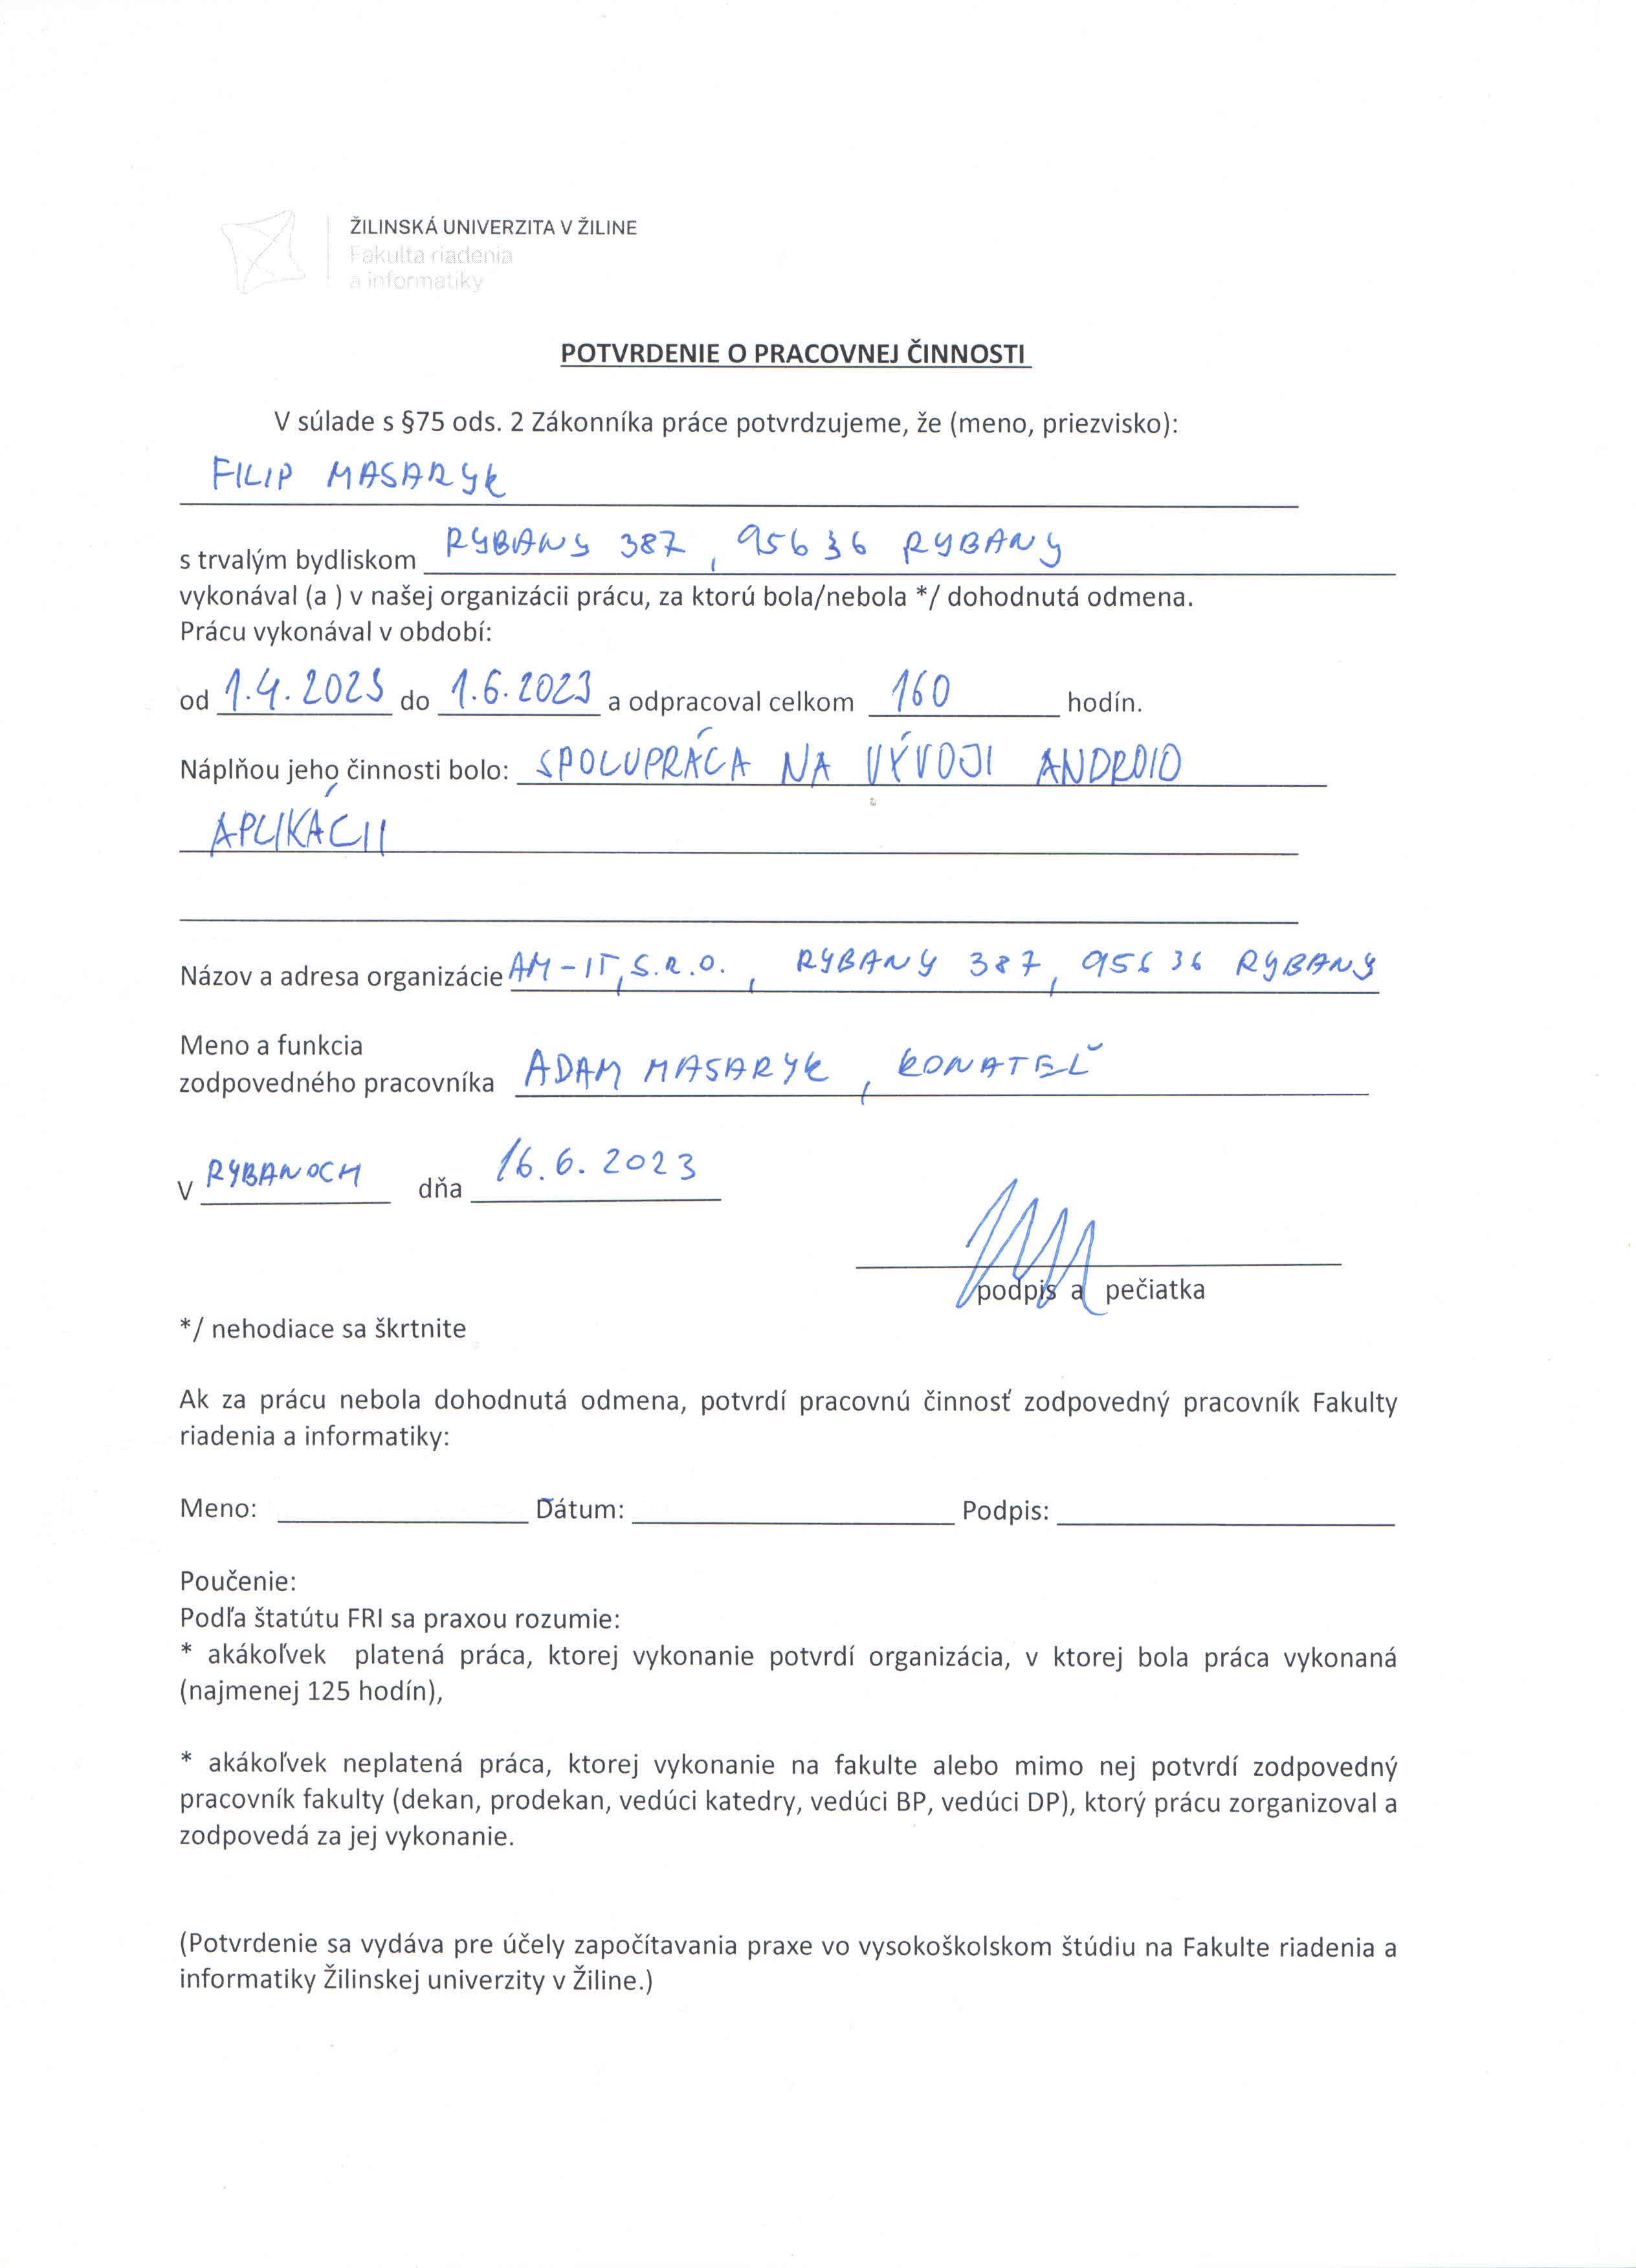 ŽILINSKÁ UNIVERZITA V ŽILINE
Fakulta riadenia
a informatiky
POTVRDENIE O PRACOVNEJ ČINNOSTI
V súlade s §75 ods. 2 Zákonníka práce potvrdzujeme, že (meno, priezvisko):
FILIP MASARYK
s trvalým bydliskom RYBANY 387, 95636 RYBANY
vykonával (a ) v našej organizácii prácu, za ktorú bola/nebola */ dohodnutá odmena.
Prácu vykonával v období:
od 1.4.2023 do 1.6.2023 a odpracoval celkom 160 hodín.
Náplňou jeho činnosti bolo: SPOLUPRÁCA NA VÝVOJI ANDROID
APLIKÁCII
Názov a adresa organizácie AM-IT, S.R.O., RYBANY 387, 95636 RYBANY
Meno a funkcia
zodpovedného pracovníka ADAM MASARYK, KONATEĽ
V RYBANOCH dňa 16.6.2023
podpis a pečiatka
*/ nehodiace sa škrtnite
Ak za prácu nebola dohodnutá odmena, potvrdí pracovnú činnosť zodpovedný pracovník Fakulty
riadenia a informatiky:
Meno: Dátum: Podpis:
Poučenie:
Podľa štatútu FRI sa praxou rozumie:
* akákoľvek platená práca, ktorej vykonanie potvrdí organizácia, v ktorej bola práca vykonaná
(najmenej 125 hodín),
* akákoľvek neplatená práca, ktorej vykonanie na fakulte alebo mimo nej potvrdí zodpovedný
pracovník fakulty (dekan, prodekan, vedúci katedry, vedúci BP, vedúci DP), ktorý prácu zorganizoval a
zodpovedá za jej vykonanie.
(Potvrdenie sa vydáva pre účely započítavania praxe vo vysokoškolskom štúdiu na Fakulte riadenia a
informatiky Žilinskej univerzity v Žiline.)